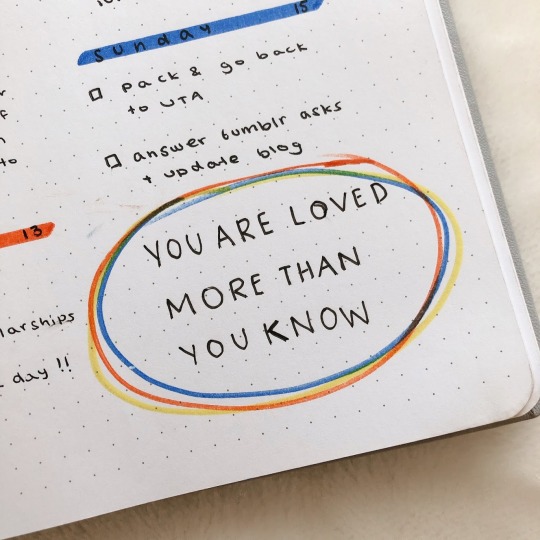 Sunday 15
pack & go back
to UTA
answer tumblr asks
+ update blog
13
YOU ARE LOVED
MORE THAN
YOU KNOW
day !!